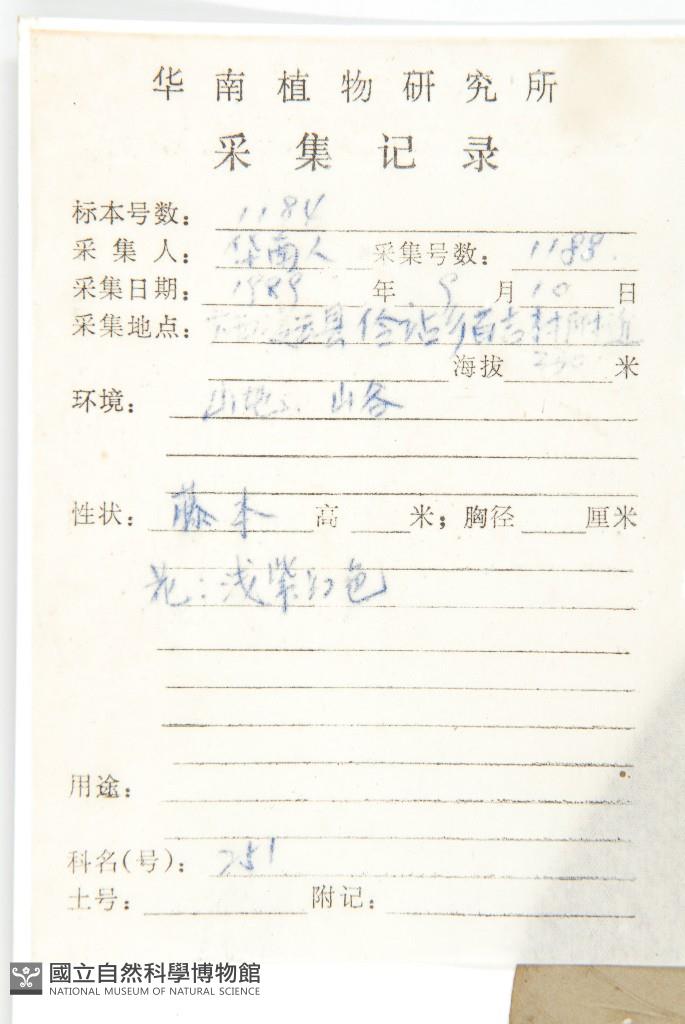 华南植物研究所
采集记录
标本号数: 1184
采集人: 华南人 采集号数: 1188
采集日期: 1989 年 9 月 10 日
采集地点: 县伶站乡佰吉村附近
海拔 米
环境: 山地、山谷
性状: 藤本 高 米; 胸径 厘米
花:浅紫红色
用途:
科名(号): 251
土号: 附记:
國立自然科學博物館
NATIONAL MUSEUM OF NATURAL SCIENCE